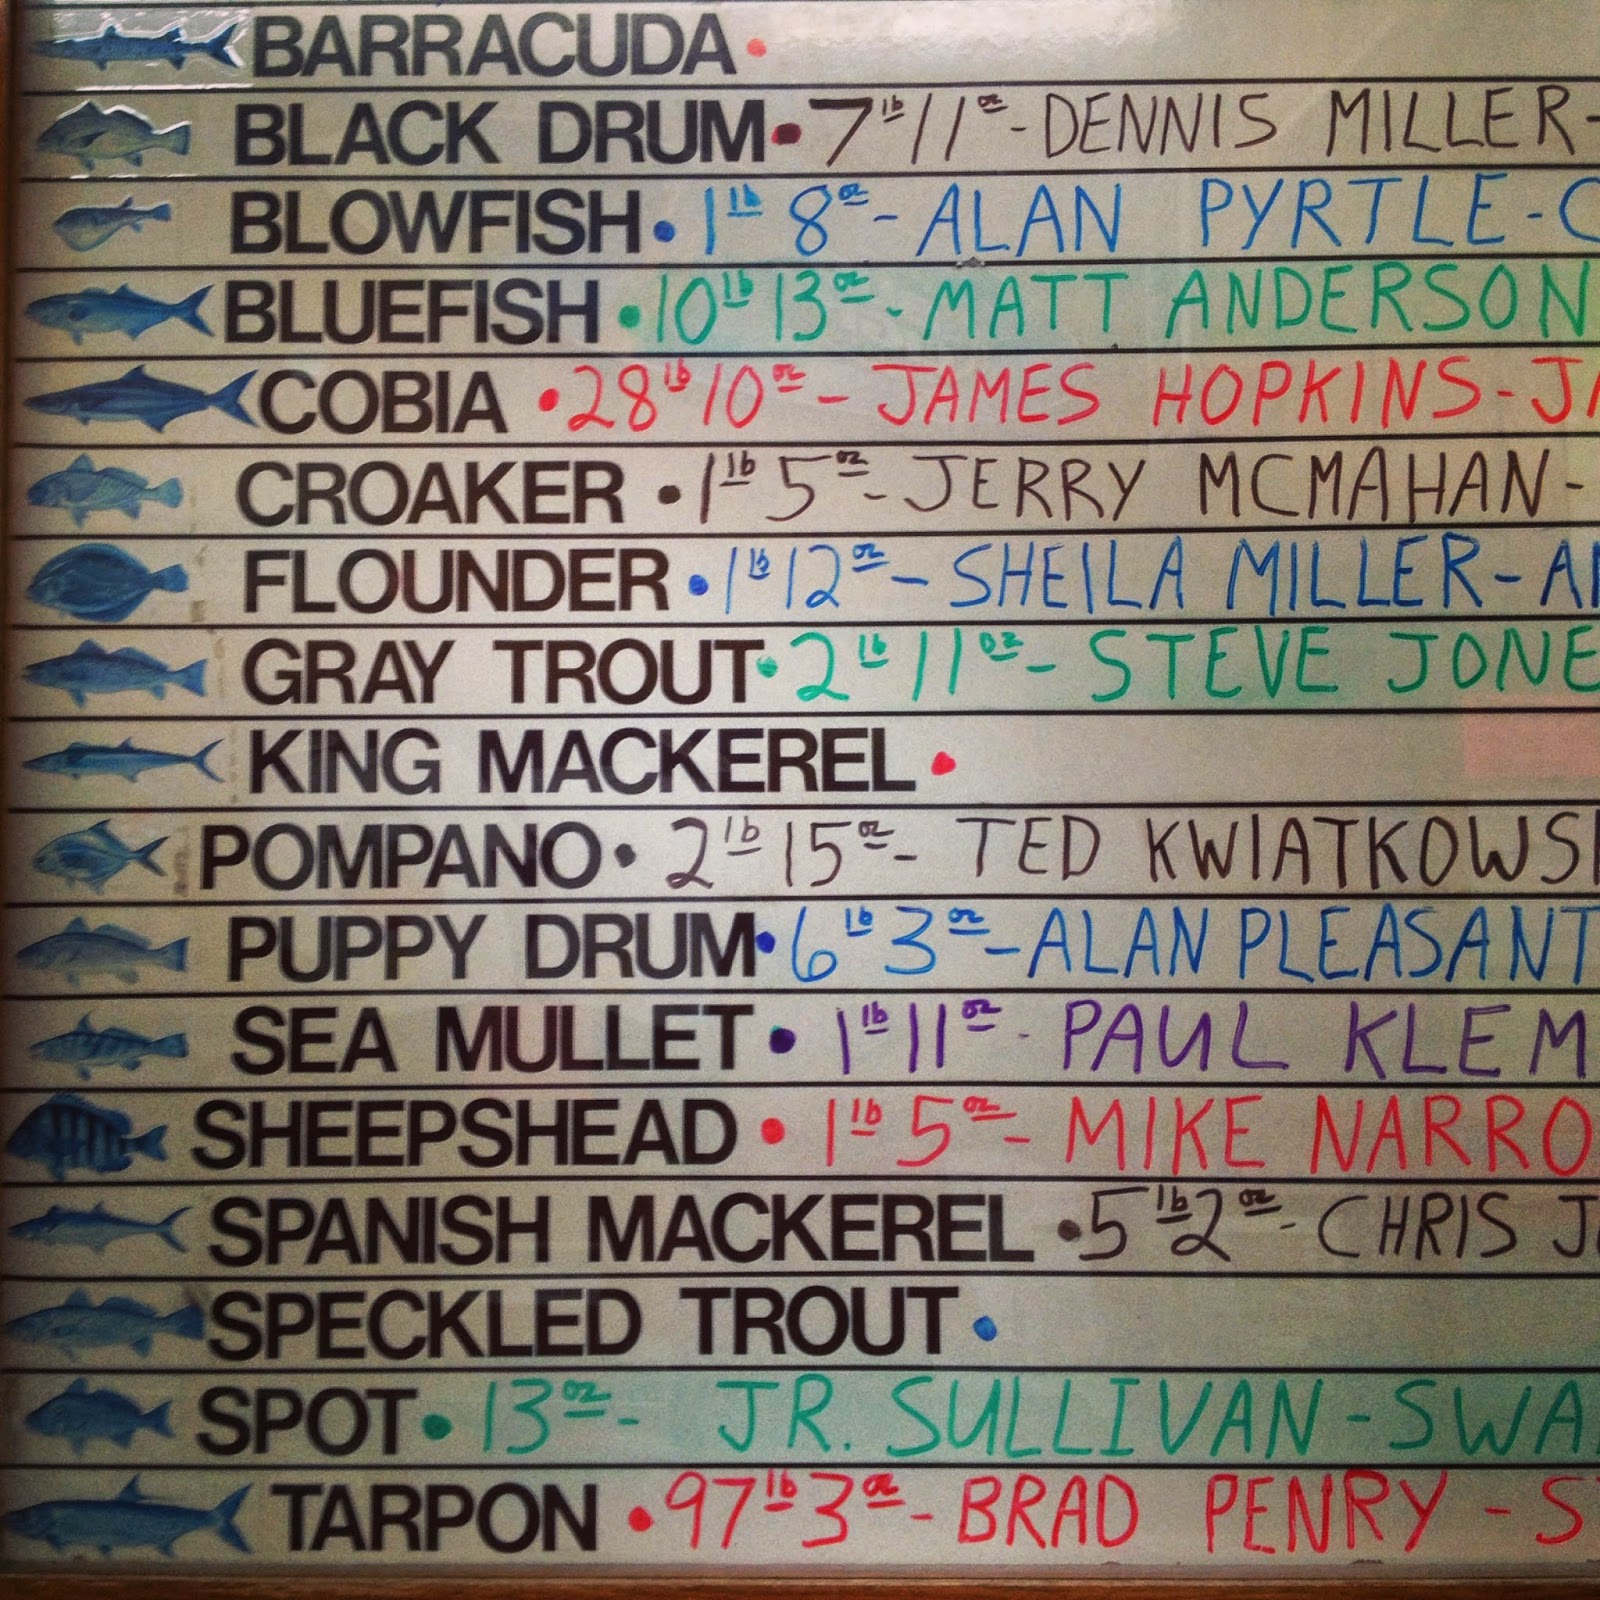 BARRACUDA •
BLACK DRUM • 7 lb 11 oz - DENNIS MILLER -
BLOWFISH • 1 lb 8 oz - ALAN PYRTLE - C
BLUEFISH • 10 lb 13 oz - MATT ANDERSON
COBIA • 28 lb 10 oz - JAMES HOPKINS - JA
CROAKER • 1 lb 5 oz - JERRY MCMAHAN -
FLOUNDER • 1 lb 12 oz - SHEILA MILLER - A
GRAY TROUT • 2 lb 11 oz - STEVE JONE
KING MACKEREL •
POMPANO • 2 lb 15 oz - TED KWIATKOWS
PUPPY DRUM • 6 lb 3 oz - ALAN PLEASANT
SEA MULLET • 1 lb 11 oz - PAUL KLEM
SHEEPSHEAD • 1 lb 5 oz - MIKE NARRO
SPANISH MACKEREL • 5 lb 2 oz - CHRIS J
SPECKLED TROUT •
SPOT • 13 oz - JR. SULLIVAN - SWA
TARPON • 97 lb 3 oz - BRAD PENRY - S